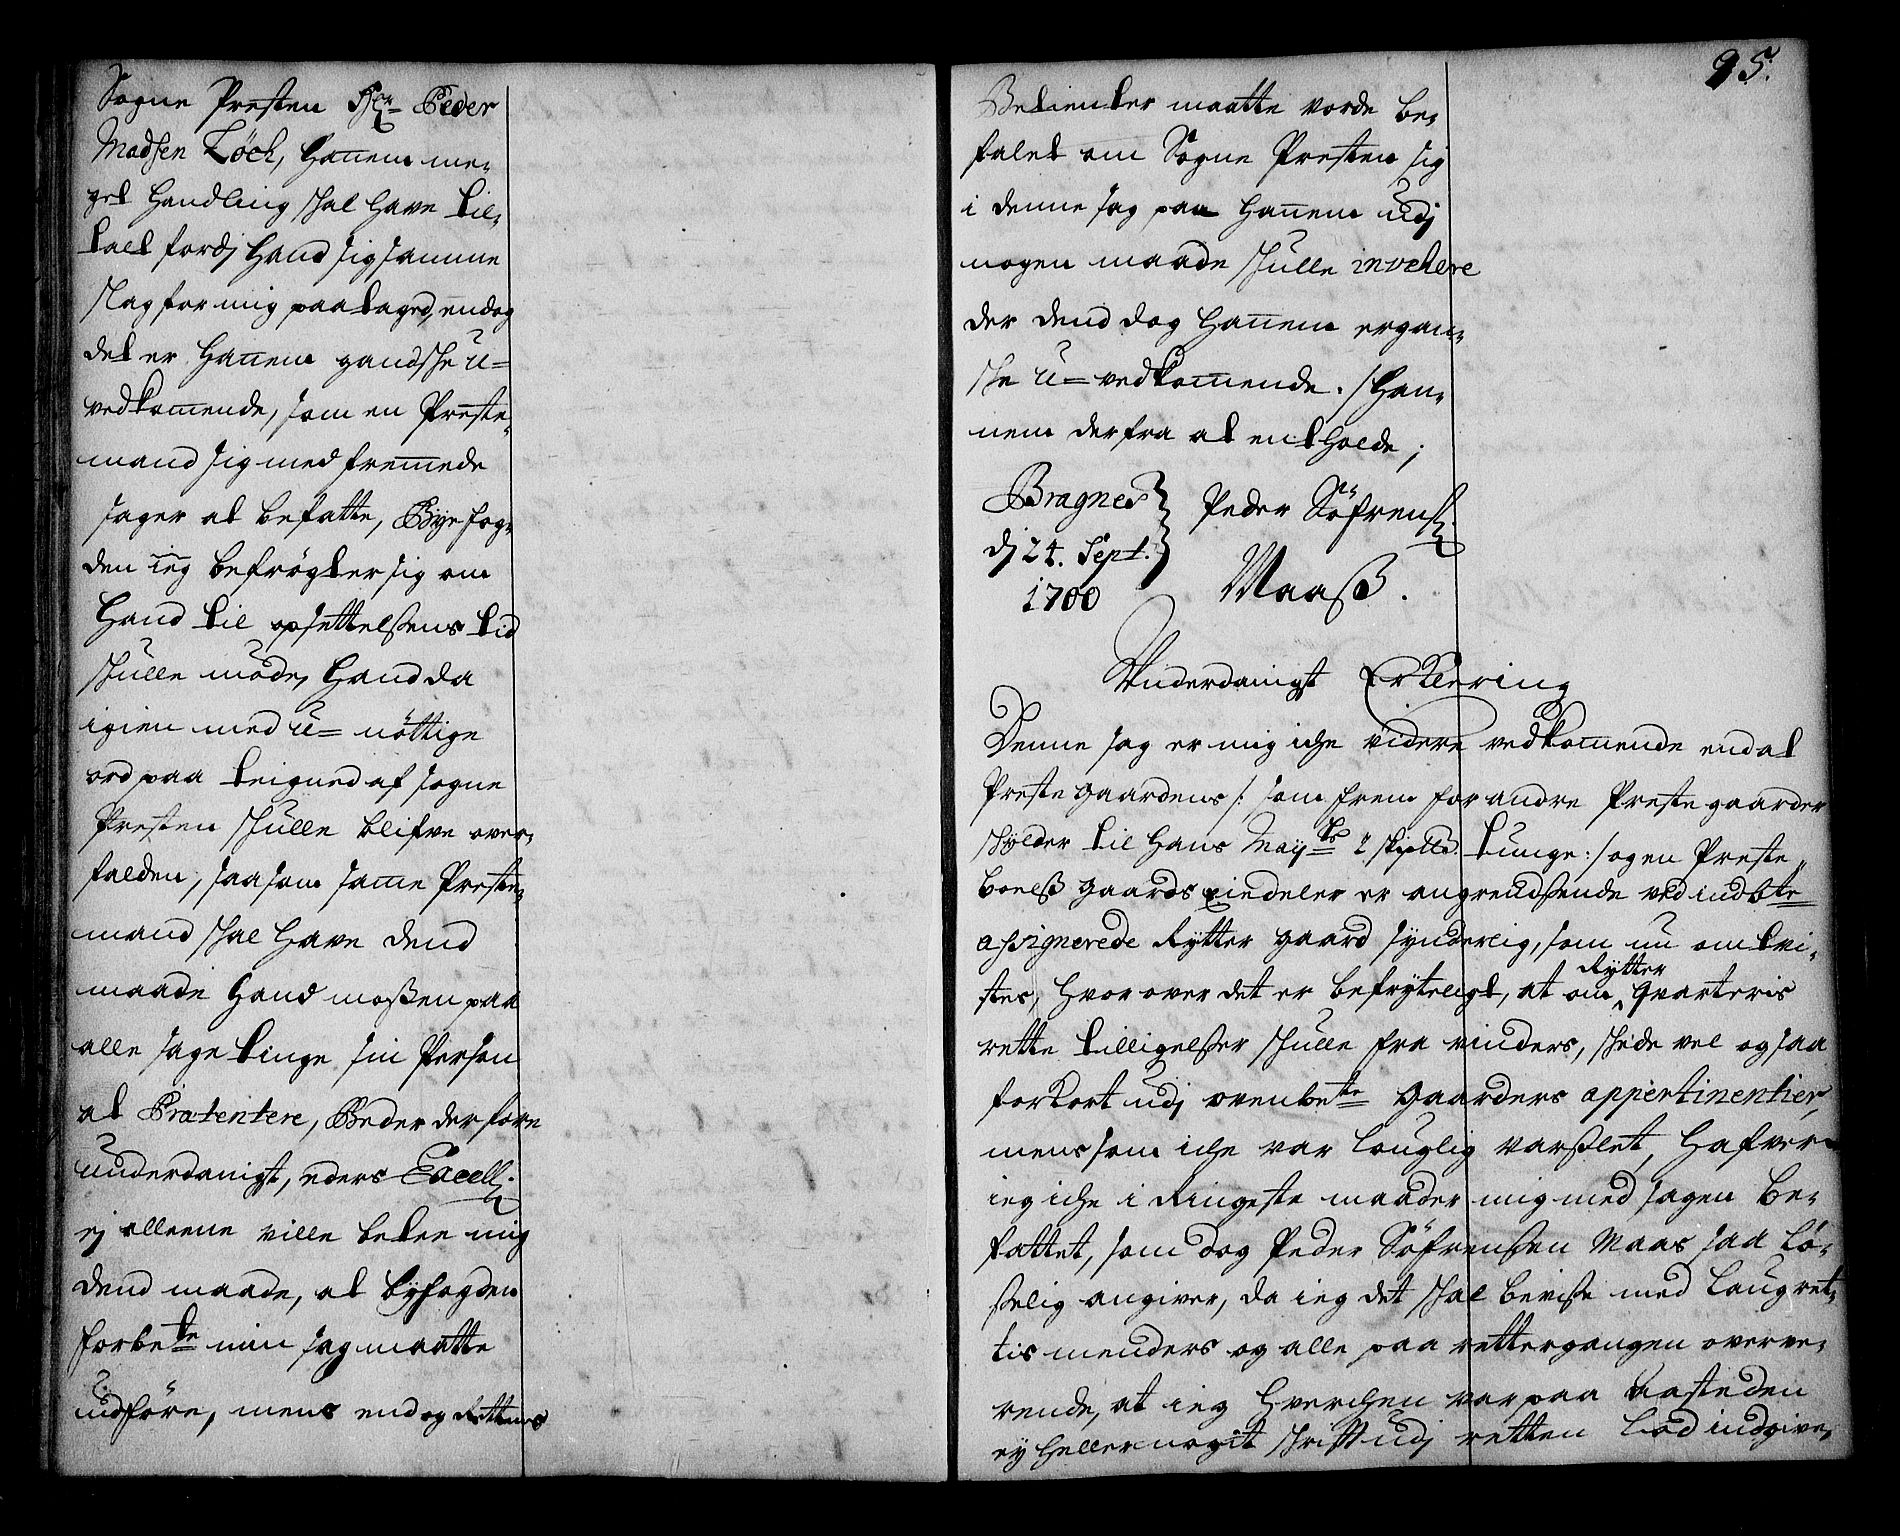 Sogne Presten Hr Peder
Madsen Löch, hannem me-
get handling skal have til-
talt fordj hand sig samme
slag for mig paataged, endog
det er hannem gandske u-
vedkommende, som en Preste-
mand sig med fremmede
sager at befatte, Byefog-
den ieg befrögter sig om
hand til opsettelsens tid
skulle möde, hand da
igien med u-nöttige
ord paa teigned af sogne
Presten skulle blifve over-
falden, saasom samme Preste-
mand skal have dend
maade hand moßen paa
alle sage tinge sin Person
at Prætentere, Beder derfore
underdanigst, eders Excell.
ej alleene ville betee mig
dend maade, at byfogden
forbete min sag maatte
udföre, mens endog Rettens
95.
Betienter maatte vorde be-
falet om Sogne Presten sig
i denne sag paa hannem udj
nogen maade skulle invetere
der dend dog hannem ergan-
ske u-vedkommende. han-
nem derfra at entholde;
Bragnes
dj 24. Sept.
1700
Peder Söfrens.
Maaß.
Underdanigst Erklering
Denne sag er mig iche videre vedkommende end at
Preste gaardens /: som frem for andre Preste gaarder
skylder til hans Mayts 2 skpd. tunge :/ og en Preste
boels gaards eindeler er angrendsende ved indbte
assignerede Rytter gaard synderlig, som nu om tvi-
stes, hvor over det er befryteligt, at om Rytter qvarteris
rette tilligelser skulle fra vinders, skede vel ogsaa
forkort udj ovenbete gaarders appertinentier,
mens som iche var louglig varslet, hafver
ieg iche i Ringeste maader mig med sagen be-
fattet, som dog Peder Söfrensen Maas saa lö-
selig angiver, da ieg det skal bevise med laugret-
tis menders og alle paa rettergangen overve-
rende, at ieg hverchen var paa aasteden
ey heller nogit skrift udj retten lod indgive,